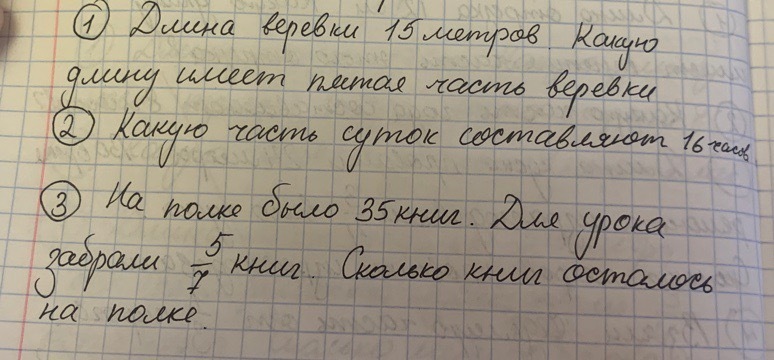 ① Длина веревки 15 метров. Какую
длину имеет пятая часть веревки
② Какую часть суток составляют 16 часов
③ На полке было 35 книг. Для урока
забрали 5/7 книг. Сколько книг осталось
на полке.